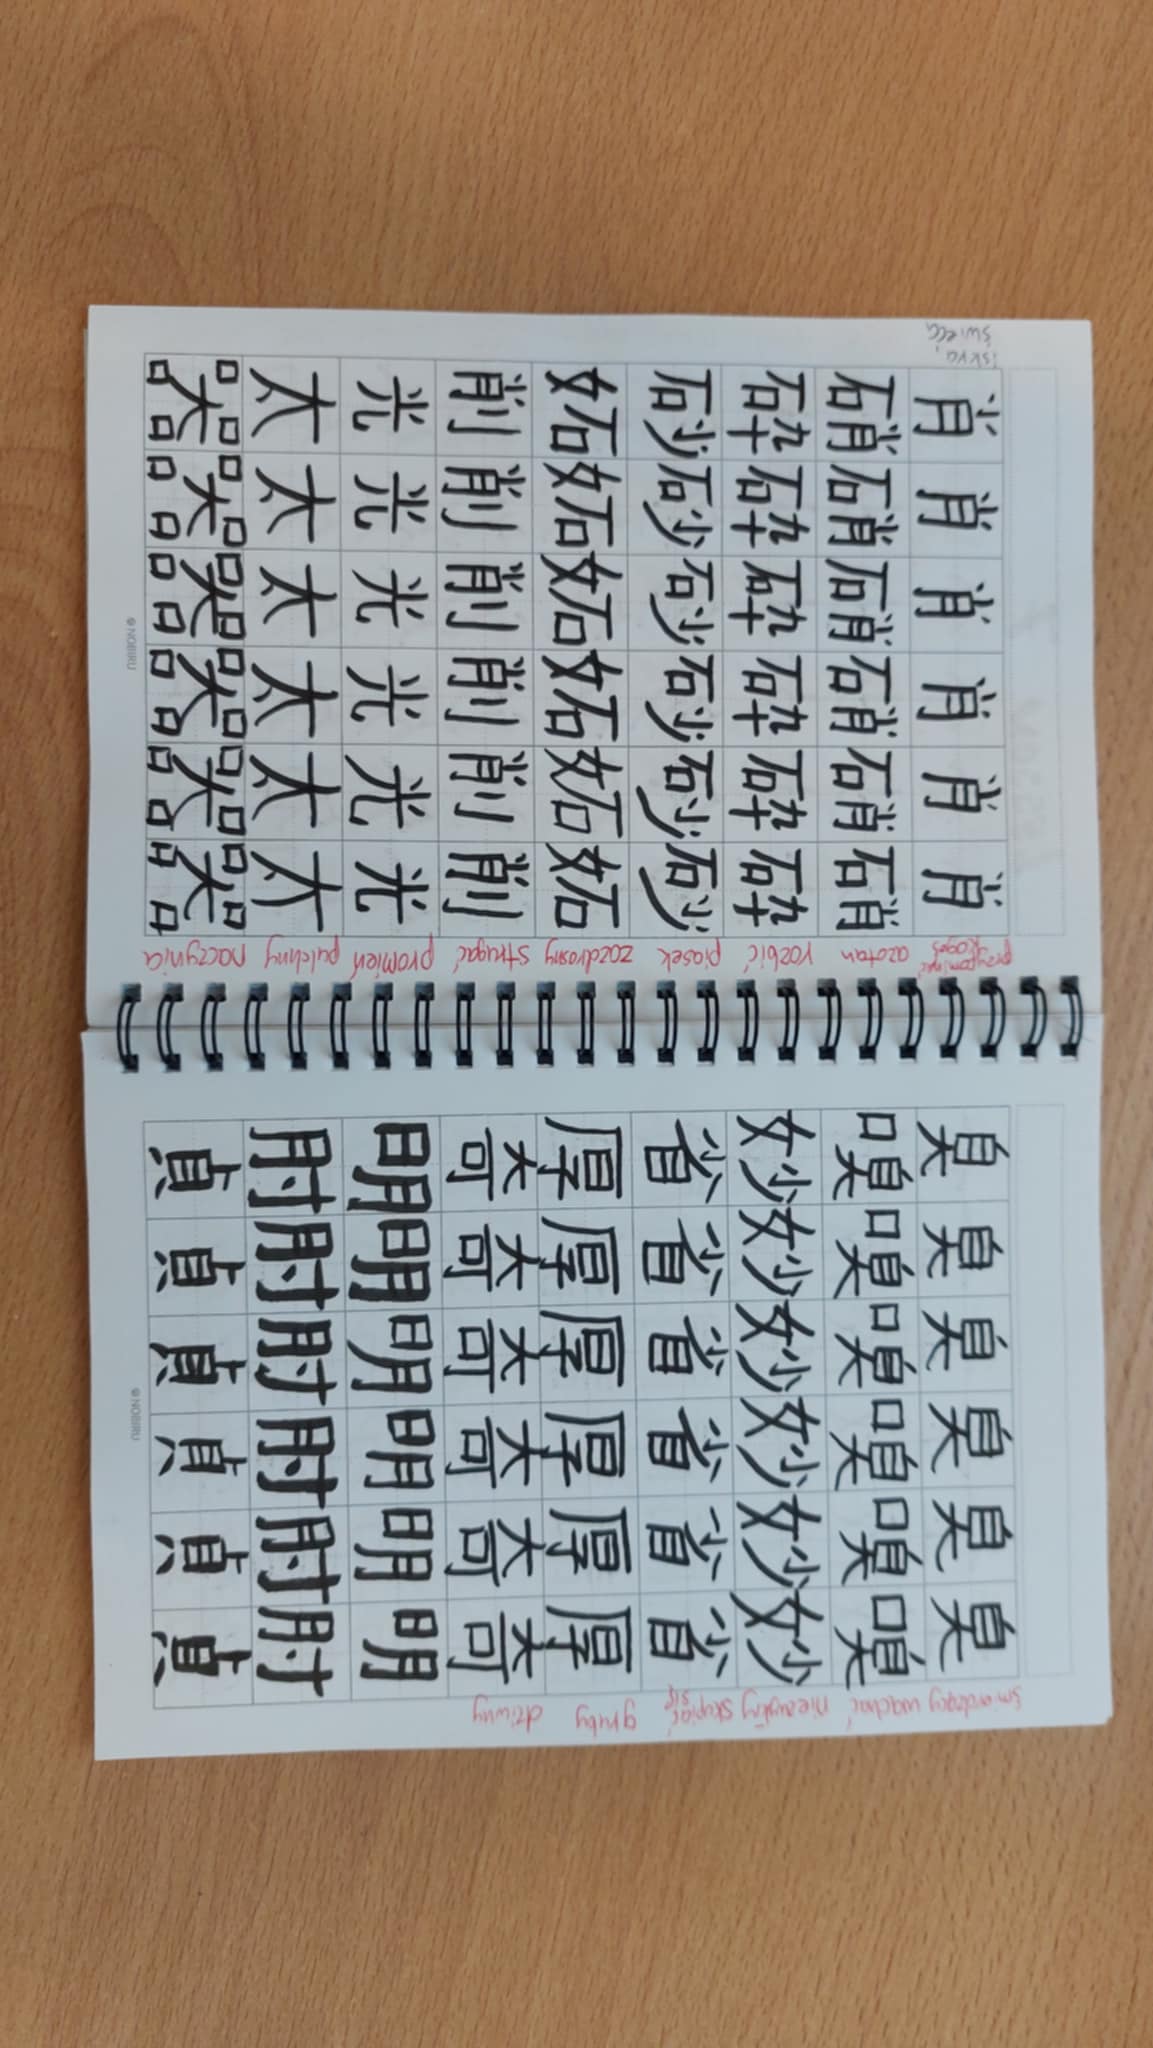 肖肖肖肖肖肖
przypominać kogoś
硝硝硝硝硝硝
azotan
砕砕砕砕砕砕
rozbić
砂砂砂砂砂砂
piasek
妬妬妬妬妬妬
zazdrosny
削削削削削削
strugać
光光光光光光
promień
太太太太太太
pulchny
器器器器器器
naczynia
© NOBIRU
臭臭臭臭臭臭
śmierdzący
嗅嗅嗅嗅嗅嗅
wąchać
妙妙妙妙妙妙
niezwykły
省省省省省省
skupiać się
厚厚厚厚厚厚
gruby
奇奇奇奇奇奇
dziwny
明明明明明明
肘肘肘肘肘肘
貞貞貞貞貞貞
© NOBIRU